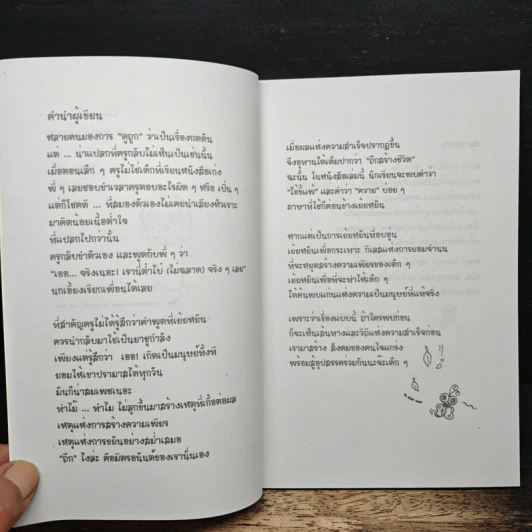 คำนำผู้เขียน
หลายคนมองการ "ดูถูก" ว่าเป็นเรื่องกดดัน
แต่ ... น่าแปลกที่ครูกลับไม่เห็นเป็นเช่นนั้น
เมื่อตอนเล็ก ๆ ครูไม่ใช่เด็กที่เรียนหนังสือเก่ง
พี่ ๆ เลยชอบขำเวลาครูตอบอะไรผิด ๆ หรือ เปิ่น ๆ
แต่ก็โชคดี ... ที่สมองตัวเองไม่เคยนำเสียงหัวเราะ
มาคิดน้อยเนื้อต่ำใจ
ที่แปลกไปกว่านั้น
ครูกลับขำตัวเอง และพูดกับพี่ ๆ ว่า
"เออ... จริงเนอะ! เรานี่ต๊าไป (ไม่ฉลาด) จริง ๆ เลย"
นกเอี้ยงเรียกเพื่อนได้เลย
ที่สำคัญครูไม่ได้รู้สึกว่าคำพูดที่เย้ยหยัน
ควรนำกลับมาใช้เป็นยาชูกำลัง
เพียงแต่รู้สึกว่า เออ! เกิดเป็นมนุษย์ทั้งที
ยอมให้เขาปรามาสได้ทุกวัน
มันก็น่าสมเพชเนอะ
ทำไม้ ... ทำไม ไม่ลุกขึ้นมาสร้างเหตุที่เกื้อต่อผล
เหตุแห่งการสร้างความเพียร
เหตุแห่งการขยันอย่างสม่ำเสมอ
"ถึก" ไงล่ะ คือมิตรอนันต์ของเรานั่นเอง
เมื่อผลแห่งความสำเร็จปรากฏขึ้น
จึงอุทานได้เต็มปากว่า "ถึกสร้างชีวิต"
ฉะนั้น ในหนังสือเล่มนี้ นักเรียนจะพบคำว่า
"ไอ้ขี้แพ้" และคำว่า "ควาย" บ่อย ๆ
ภาษาที่ใช้ก็ค่อนข้างเย้ยหยัน
หากแต่เป็นการเย้ยหยันที่อบอุ่น
เย้ยหยันเพื่อกระเทาะ กิเลสแห่งการยอมจำนน
ที่จะหยุดสร้างความเพียรของเด็ก ๆ
เย้ยหยันเพื่อที่จะทำให้เด็ก ๆ
ได้ค้นพบแก่นแห่งความเป็นมนุษย์ที่แท้จริง
เพราะว่าเรื่องแบบนี้ ถ้าใครพบก่อน
ก็จะเห็นเส้นทางและวิถีแห่งความสำเร็จก่อน
เรามาสร้าง สังคมของคนใจแกร่ง
พร้อมสู้อุปสรรคร่วมกันนะจ๊ะเด็ก ๆ